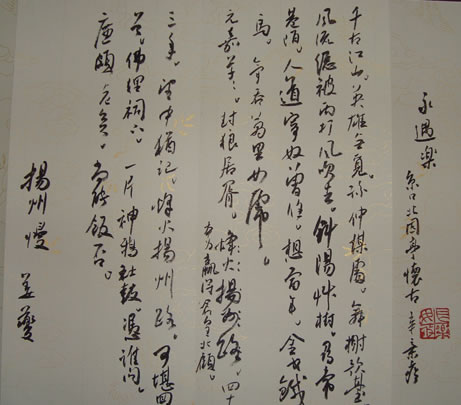 永遇樂
京口北固亭懷古 辛棄疾
千古江山。英雄無覓。孫仲謀處。舞榭歌臺
風流總被雨打風吹去。斜陽艸樹。尋常
巷陌。人道寄奴曾住。想當年。金戈鐵
馬。氣吞萬里如虎。
元嘉草草。封狼居胥。烽火揚州路。四十
贏得倉皇北顧。
三年。望中猶記。烽火揚州路。可堪回
首。佛狸祠下。一片神鴉社鼓。憑誰問。
廉頗老矣。尚能飯否。
揚州慢 姜夔